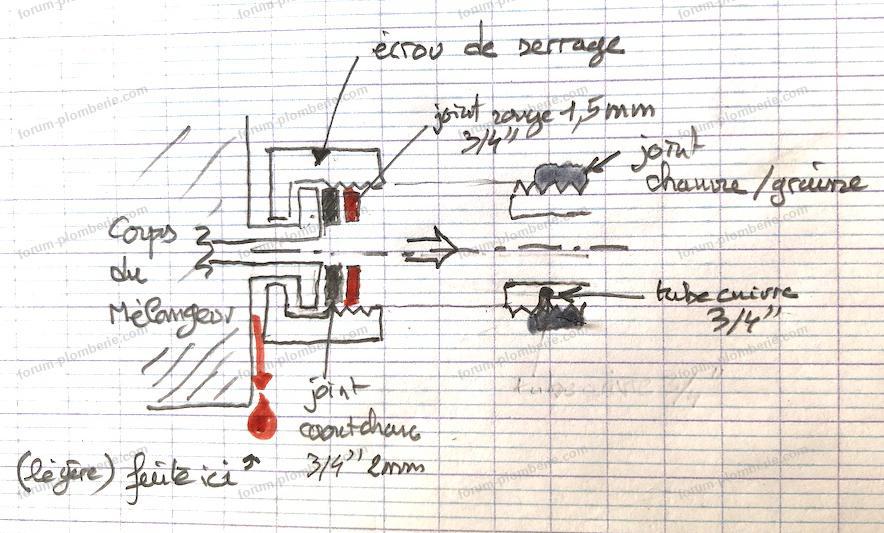 écrou de serrage
joint rouge 1,5mm
3/4"
joint
chanvre/graisse
Corps
du
Mélangeur
tube cuivre
3/4"
joint
caoutchouc
3/4" 2mm
(légère) fuite ici
forum-plomberie.com